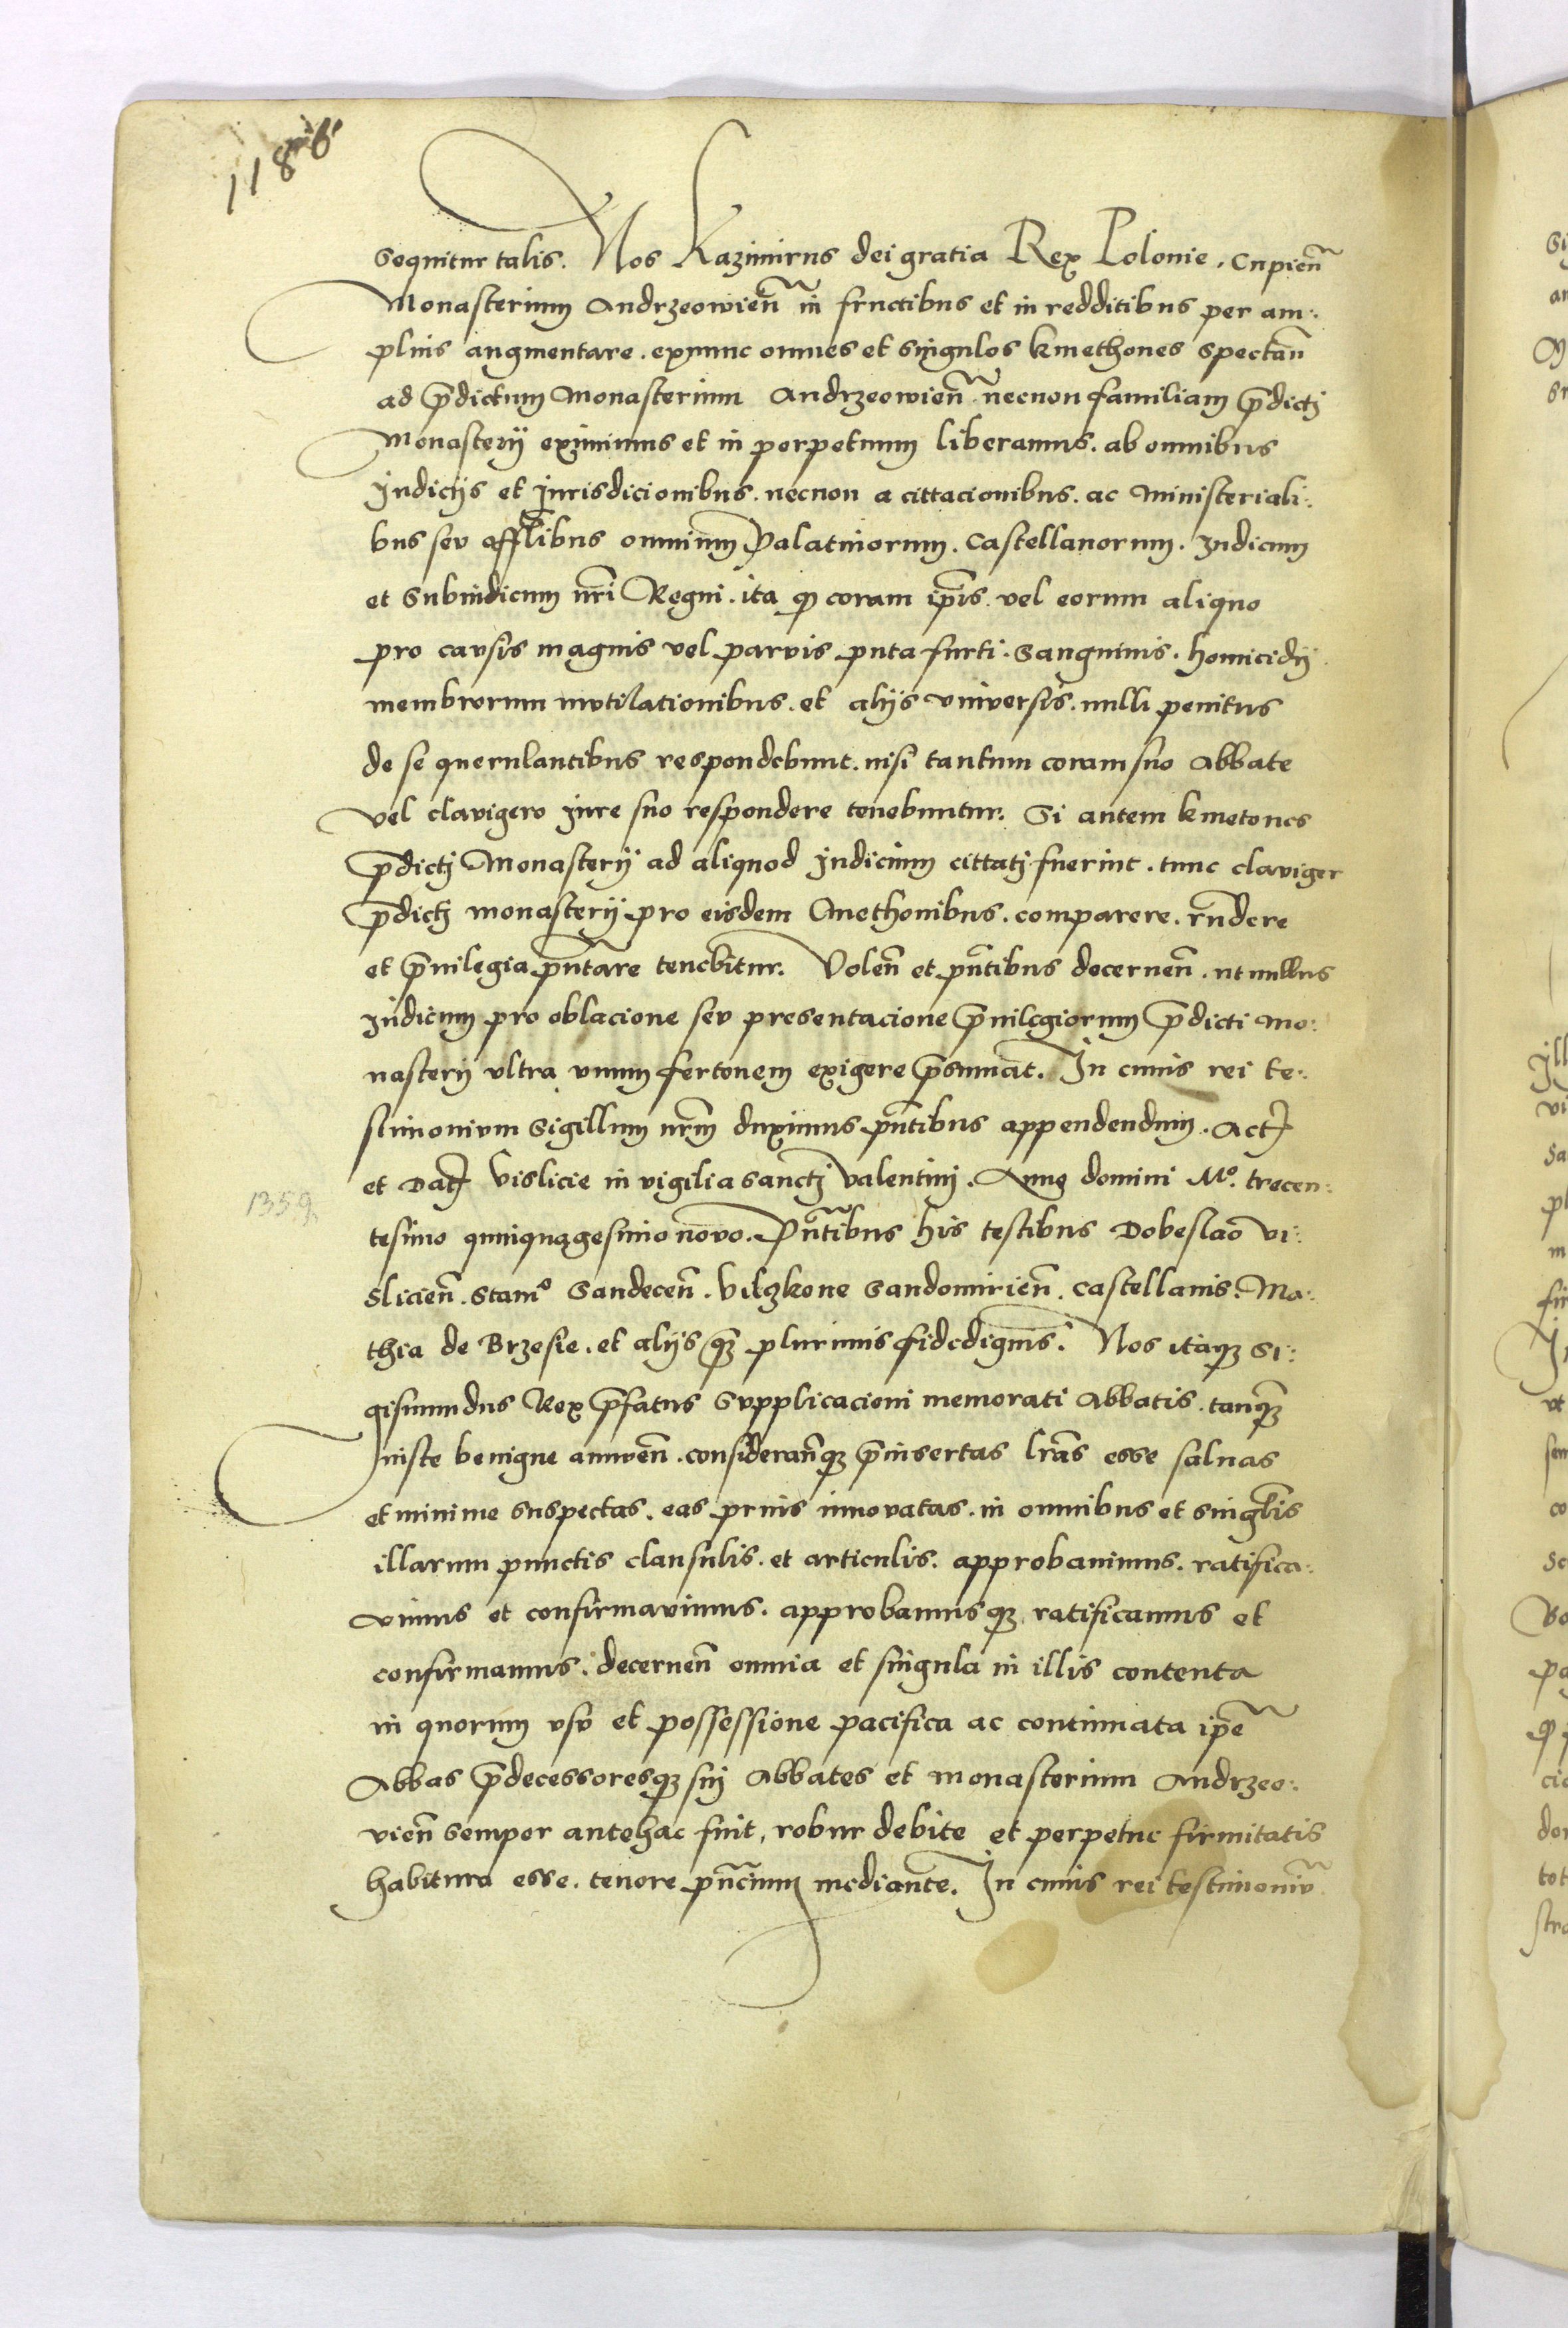 118 b
sequitur talis. Nos Kazimirus dei gratia Rex Polonie. Cupien̄
Monasterium Andrzeowien̄ in fructibus et in redditibus per am:
plius augmentare. exnunc omnes et singulos kmethones spectan̄
ad p̄dictum Monasterium Andrzeowien̄. necnon familiam p̄dictj
Monasterij eximimus et in perpetuum liberamus. ab omnibus
Judicijs et Jurisdicionibus. necnon a cittacionibus. ac ministeriali:
bus seu off̄libus omnium Palatinorum. Castellanorum. Judicum
et Subiudicum nr̄i Regni. ita q̄ coram ip̄is. vel eorum aliquo
pro causis magnis vel parvis puta furti. Sanguinis. homicidij
membrorum mutilationibus. et alijs vniversis. nulli penitus
de se querulantibus respondebunt. nisi tantum coram suo Abbate
vel clavigero Jure suo respondere tenebuntur. Si autem kmetones
p̄dictj Monasterij ad aliquod Judicium cittatj fuerint. tunc claviger
p̄dictj monasterij pro eisdem Cmethonibus. comparere. rn̄dere
et p̄uilegia pn̄tare tenebitur. Volen̄ et pn̄tibus decernen̄. ut nullus
Judicum pro oblacione seu presentacione p̄uilegiorum p̄dicti mo:
nasterij vltra vnum fertonem exigere p̄sumat. In cuius rei te:
stimonium Sigillum nr̄m duximus pn̄tibus appendendum. Actj
et Datj Vislicie in vigilia sanctj Valentinj. Anno domini Mº. trecen:
1359.
tesimo quinquagesimo novo. Pn̄tibus his testibus Dobeslao Vi:
slicien̄. Stanº Sandecen̄. Vilczkone Sandomirien̄. Castellanis. Ma:
thia de Brzesie. et alijs q̄ plurimis fidedignis. Nos itaq̨ Si:
gismundus Rex p̄fatus Supplicacioni memorati Abbatis. tanq̄
iuste benigne annuen̄. consideran̄q̨ p̄insertas lr̄as esse saluas
et minime suspectas. eas prius innovatas. in omnibus et singl̄is
illarum punctis clausulis. et articulis. approbauimus. ratifica:
vimus et confirmavimus. approbamusq̨ ratificamus et
confirmamus. decernen̄ omnia et singula in illis contenta
in quorum usu et possessione pacifica ac continuata ip̄e
Abbas p̄decessoresq̨ sui Abbates et monasterium Andrzeo:
vien̄ semper antehac fuit, robur debite et perpetue firmitatis
habitura esse. tenore pn̄cium mediante. In cuius rei testimoniū